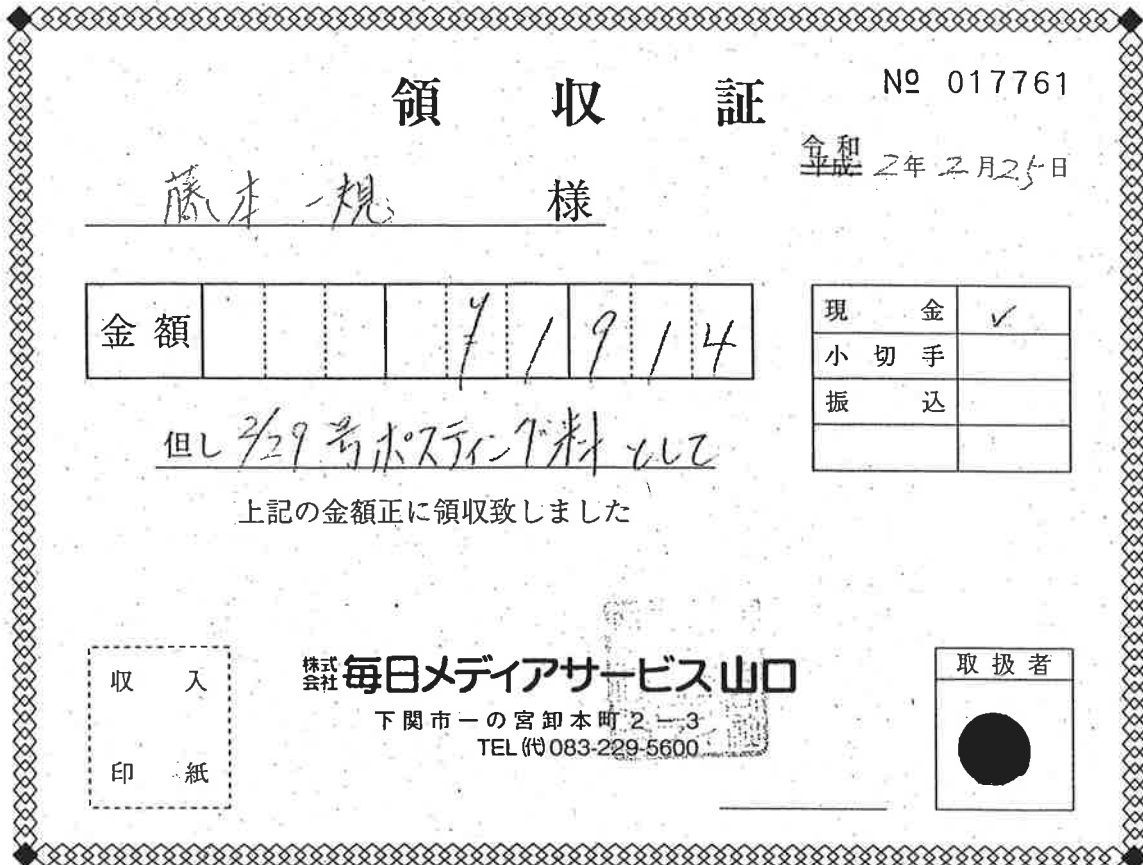 領収証
№ 017761
令和
平成 2年2月25日
藤本一規 様
金額 ¥1914
現金 ✓
小切手
振込
但し 2/29号ポスティング料として
上記の金額正に領収致しました
収入
印紙
株式会社 毎日メディアサービス山口
下関市一の宮卸本町2-3
TEL(代)083-229-5600
取扱者